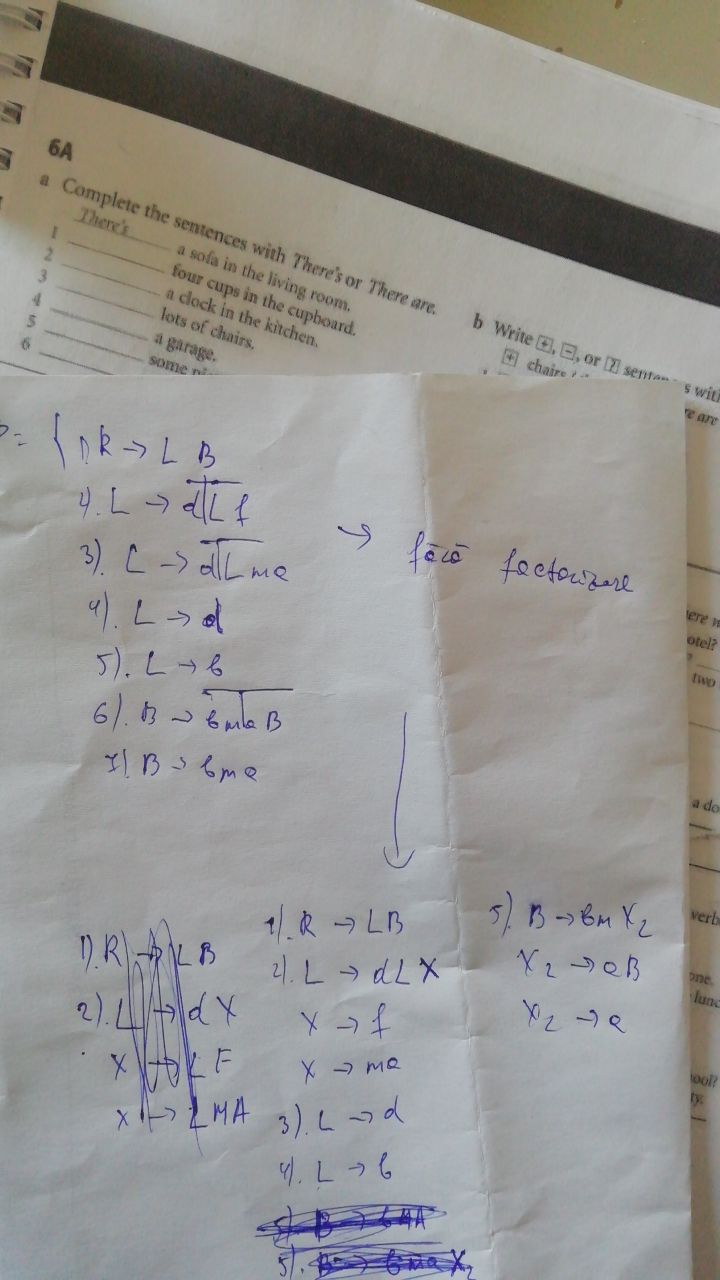 6A
a Complete the sentences with There's or There are.
1 There's a sofa in the living room.
2 four cups in the cupboard.
3 a clock in the kitchen.
4 lots of chairs.
5 a garage.
6 some
b Write +, −, or ? with
+ chairs
P = { 1) R → L B
4). L → d L f
3). L → d L ma
4). L → d
5). L → b
6). B → bmaB
7). B → bma
→ fără factorizare
1). R → LB
2). L → dX
X → LF
X → LMA
1). R → LB
2). L → dLX
X → f
X → ma
3). L → d
4). L → b
5). B → bMA
5). B → bma X2
5). B → bm X2
X2 → aB
X2 → a
two
a do